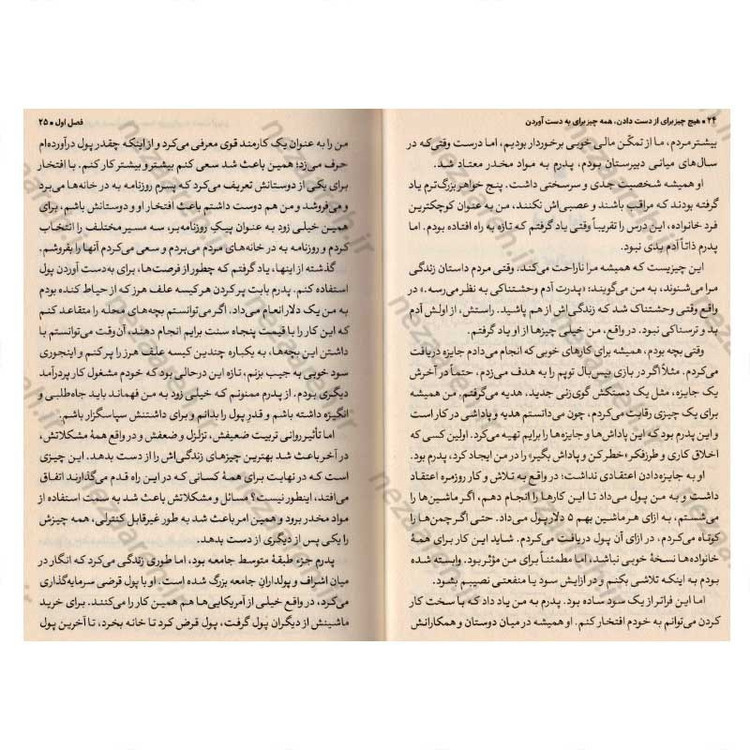 ۲۴ • هیچ چیز برای از دست دادن، همه چیز برای به دست آوردن
بیشتر مردم، ما از تمکّن مالی خوبی برخوردار بودیم، اما درست وقتی‌که در
سال‌های میانی دبیرستان بودم، پدرم به مواد مخدر معتاد شد.
او همیشه شخصیت جدی و سرسختی داشت. پنج خواهر بزرگ‌ترم یاد
گرفته بودند که مراقب باشند و عصبی‌اش نکنند، من به عنوان کوچکترین
فرد خانواده، این درس را تقریباً وقتی یاد گرفتم که تازه به راه افتاده بودم. اما
پدرم ذاتاً آدم بدی نبود.
این چیزیست که همیشه مرا ناراحت می‌کند، وقتی مردم داستان زندگی
مرا می‌شنوند، به من می‌گویند: «پدرت آدم وحشتناکی به نظر می‌رسه.» در
واقع وقتی وحشتناک شد که زندگی‌اش از هم پاشید. راستش، از اولش آدم
بد و ترسناکی نبود. در واقع، من خیلی چیزها از او یاد گرفتم.
وقتی بچه بودم، همیشه برای کارهای خوبی که انجام می‌دادم جایزه دریافت
می‌کردم. مثلاً اگر در بازی بیس‌بال توپم را به هدف می‌زدم، حتماً در آخرش
یک جایزه، مثل یک دستکش گوی‌زنی جدید، هدیه می‌گرفتم. من همیشه
برای یک چیزی رقابت می‌کردم، چون می‌دانستم هدیه و پاداشی در کار است
و این پدرم بود که این پاداش‌ها و جایزه‌ها را برایم تهیه می‌کرد. اولین کسی که
اخلاق کاری و طرز فکر «خطر کن و پاداش بگیر» را در من ایجاد کرد، پدرم بود.
او به جایزه‌دادن اعتقادی نداشت؛ در واقع به تلاش و کار روزمره اعتقاد
داشت و به من پول می‌داد تا این کارها را انجام دهم، اگر ماشین‌ها را
می‌شستم، به ازای هر ماشین بهم ۵ دلار پول می‌داد. حتی اگر چمن‌ها را
کوتاه می‌کردم، در ازای آن پول دریافت می‌کردم. شاید این کار برای همهٔ
خانواده‌ها نسخهٔ خوبی نباشد، اما مطمئناً برای من مؤثر بود. وابسته شده
بودم به اینکه تلاشی بکنم و در ازایش سود یا منفعتی نصیبم بشود.
اما این فراتر از یک سود ساده بود. پدرم به من یاد داد که با سخت کار
کردن می‌توانم به خودم افتخار کنم. او همیشه در میان دوستان و همکارانش
فصل اول • ۲۵
من را به عنوان یک کارمند قوی معرفی می‌کرد و از اینکه چقدر پول درآورده‌ام
حرف می‌زد؛ همین باعث شد سعی کنم بیشتر و بیشتر کار کنم. با افتخار
برای یکی از دوستانش تعریف می‌کرد که پسرم روزنامه به در خانه‌ها می‌برد
و می‌فروشد و من هم دوست داشتم باعث افتخار او و دوستانش باشم، برای
همین خیلی زود به عنوان پیکِ روزنامه‌بر، سه مسیر مختلف را انتخاب
کردم و روزنامه به در خانه‌های مردم می‌بردم و سعی می‌کردم آنها را بفروشم.
گذشته از اینها، یاد گرفتم که چطور از فرصت‌ها، برای به‌دست آوردن پول
استفاده کنم. پدرم بابت پر کردن هر کیسه علف هرز که از حیاط کنده بودم
به من یک دلار انعام می‌داد. اگر می‌توانستم بچه‌های محله را متقاعد کنم
که این کار را با قیمت پنجاه سنت برایم انجام دهند، آن‌وقت می‌توانستم با
داشتن این بچه‌ها، به یکباره چندین کیسه علف هرز را پر کنم و اینجوری
سود خوبی به جیب بزنم، تازه این درحالی بود که خودم مشغول کار پردرآمد
دیگری بودم. از پدرم ممنونم که خیلی زود به من فهماند باید جاه‌طلبی و
انگیزه داشته باشم و قدر پول را بدانم و برای داشتنش سپاسگزار باشم.
اما تأثیر روانی تربیت ضعیفش، تزلزل و ضعفش و در واقع همهٔ مشکلاتش،
در آخر باعث شد بهترین چیزهای زندگی‌اش را از دست بدهد. این چیزی
است که در نهایت برای همهٔ کسانی که در این راه قدم می‌گذارند اتفاق
می‌افتد، اینطور نیست؟ مسائل و مشکلاتش باعث شد به سمت استفاده از
مواد مخدر برود و همین امر باعث شد به طور غیرقابل کنترلی، همه چیزش
را یکی پس از دیگری از دست بدهد.
پدرم جزء طبقهٔ متوسط جامعه بود، اما طوری زندگی می‌کرد که انگار در
میان اشراف و پولداران جامعه بزرگ شده است. او با پول قرضی سرمایه‌گذاری
می‌کرد، در واقع خیلی از آمریکایی‌ها هم همین کار را می‌کنند. برای خرید
ماشینش از دیگران پول گرفت، پول قرض کرد تا خانه بخرد، تا آخرین پول
nezparreh.ir